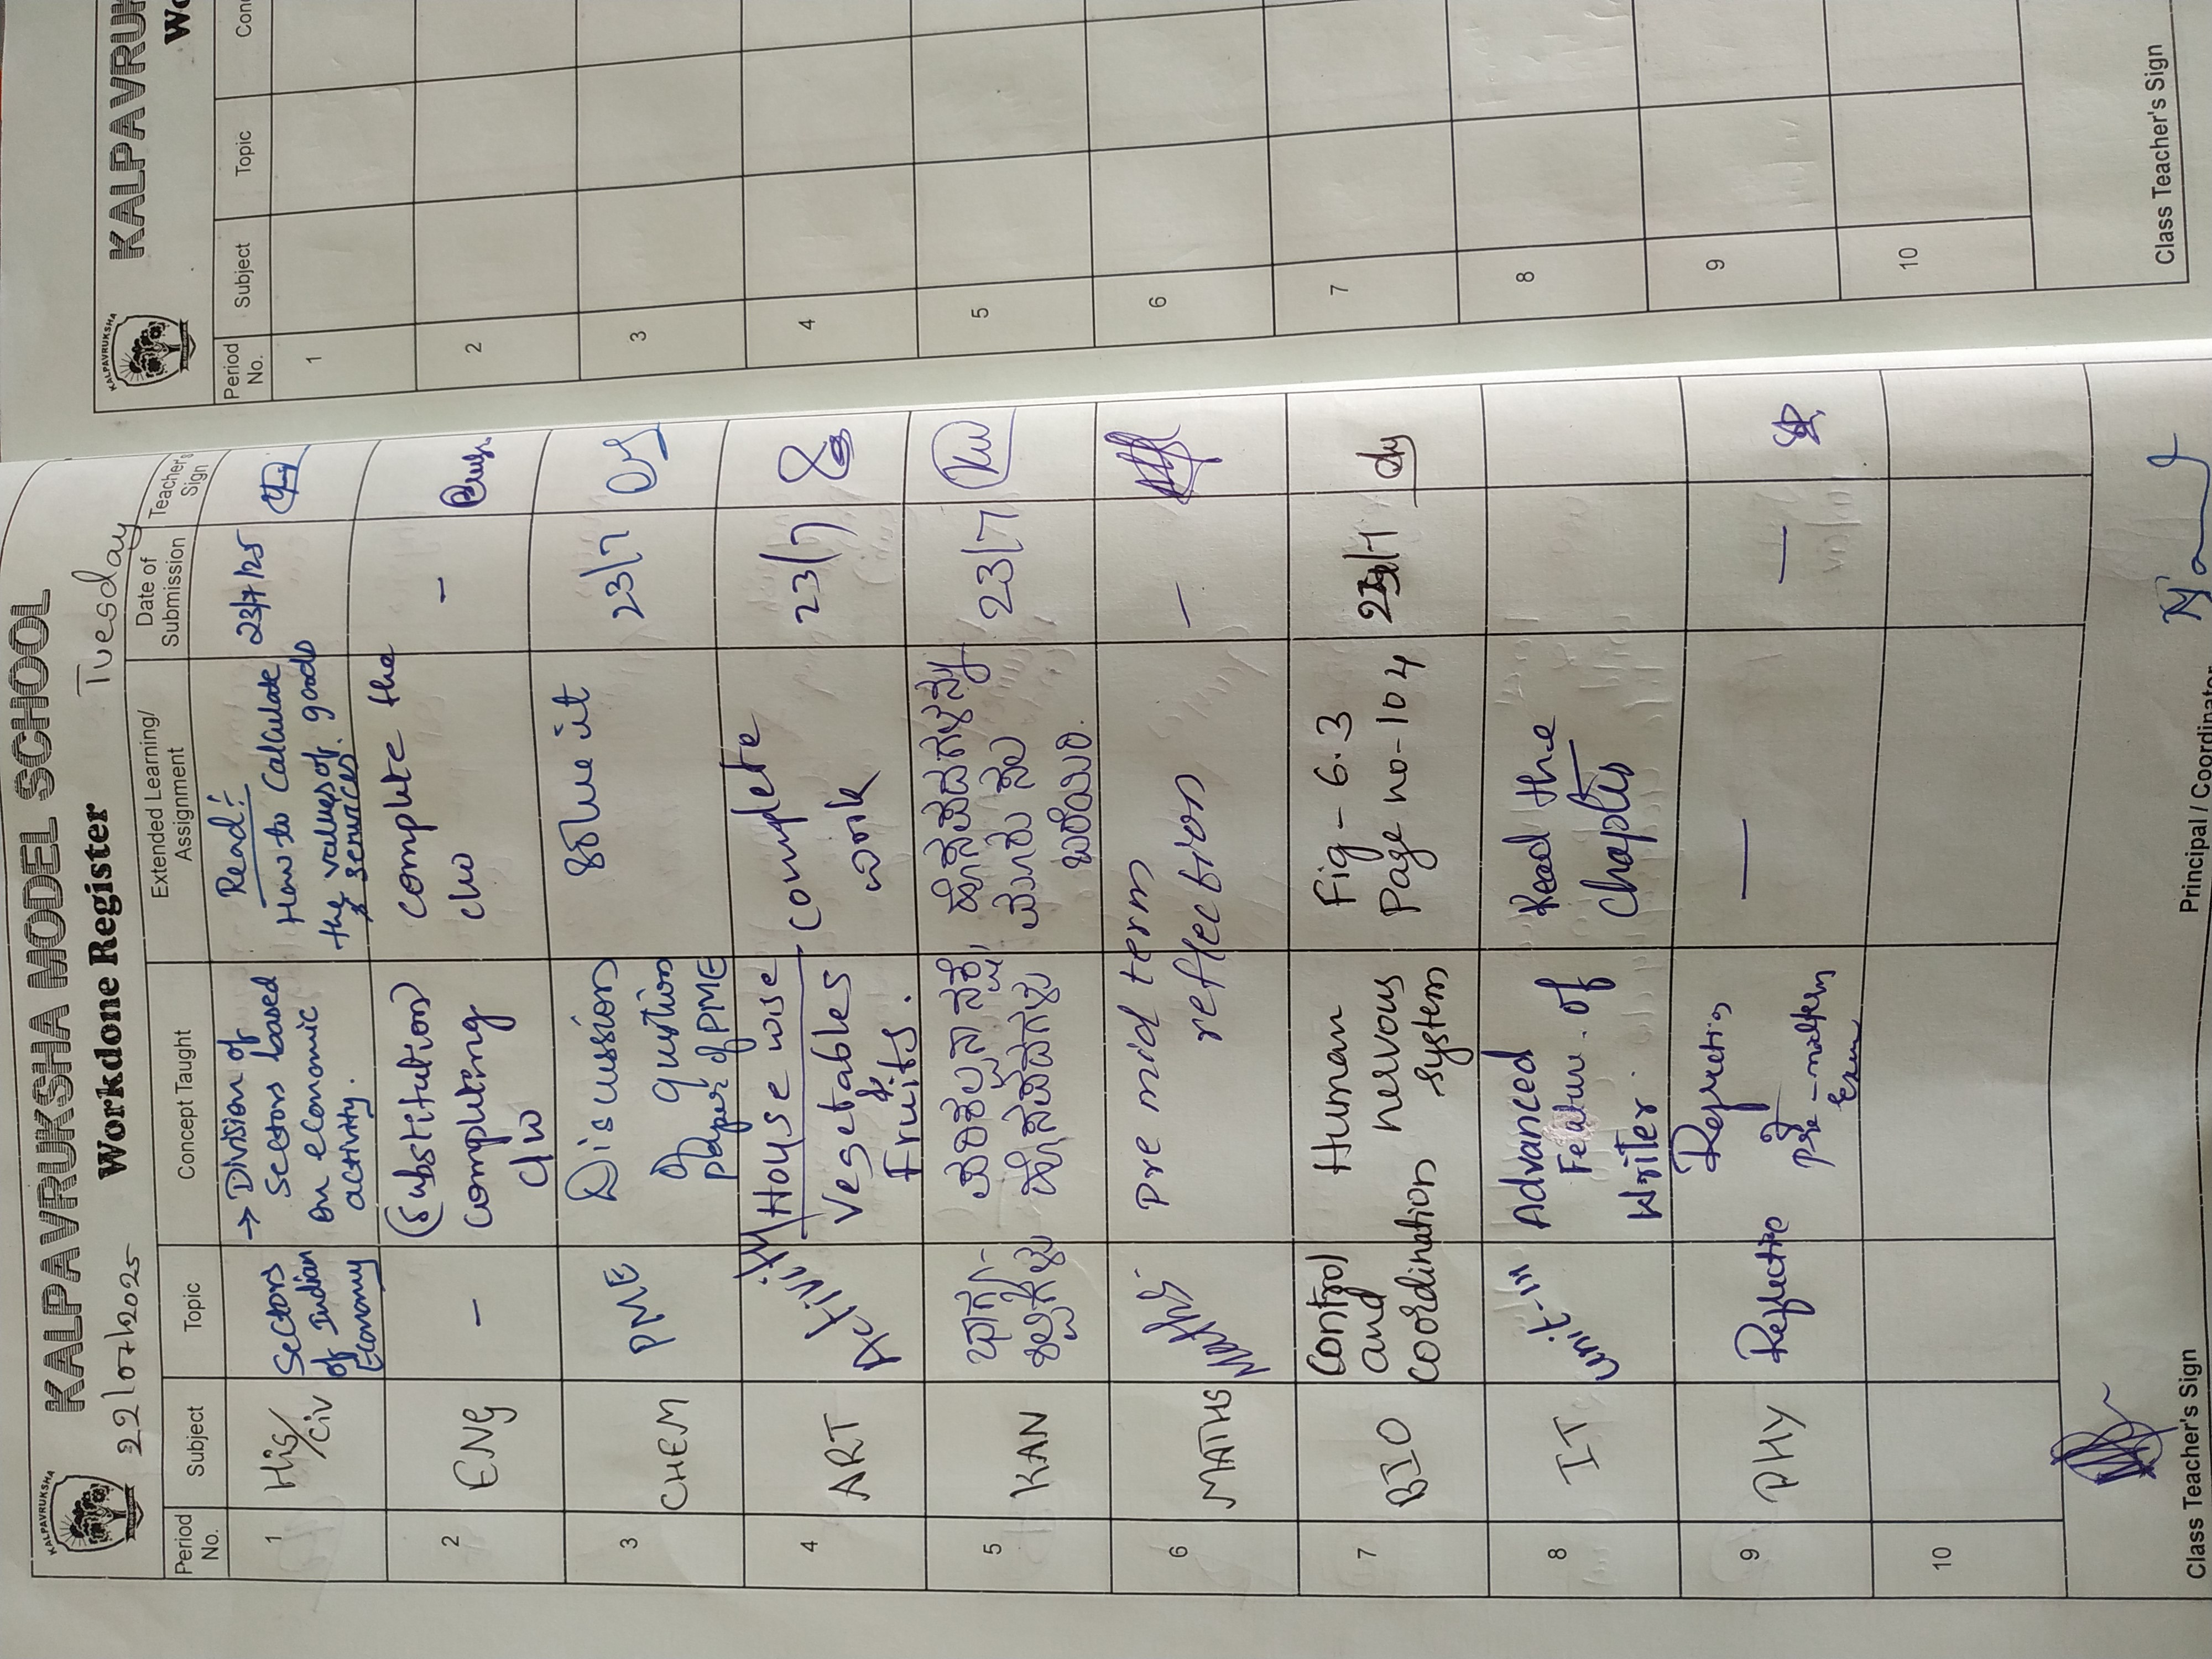 KALPAVRUKSHA
KALPAVRUKSHA MODEL SCHOOL
22/07/2025 Workdone Register Tuesday
Period No. Subject Topic Concept Taught Extended Learning/ Assignment Date of Submission Teacher's Sign
1 His/Civ
Sectors
of Indian
Economy
→ Division of
Sectors based
on economic
activity.
Read:
How to Calculate
the values of goods
& services.
23/7/25
2 ENG -
(Substitution)
completing
c/w
complete the
c/w
-
3 CHEM PME
Discussion
of question
paper of PME
solve it
23/7
4 ART
Activity
House wise
Vegetables
&
Fruits.
complete
work
23/7
5 KAN
23/7
6 MATHS
Pre mid term
reflection
-
7 BIO
Control
and
coordination
Human
nervous
system
Fig - 6.3
Page no-104
23/7
8 IT
Unit-III
Advanced
Featur. of
Writer.
Read the
Chapter
9 PHY
Reflection
of
pre-midterm
Exam
—
—
10
Class Teacher's Sign Principal / Coordinator
KALPAVRUKSHA
KALPAVRUK
Wo
Period No. Subject Topic Con
1
2
3
4
5
6
7
8
9
10
Class Teacher's Sign